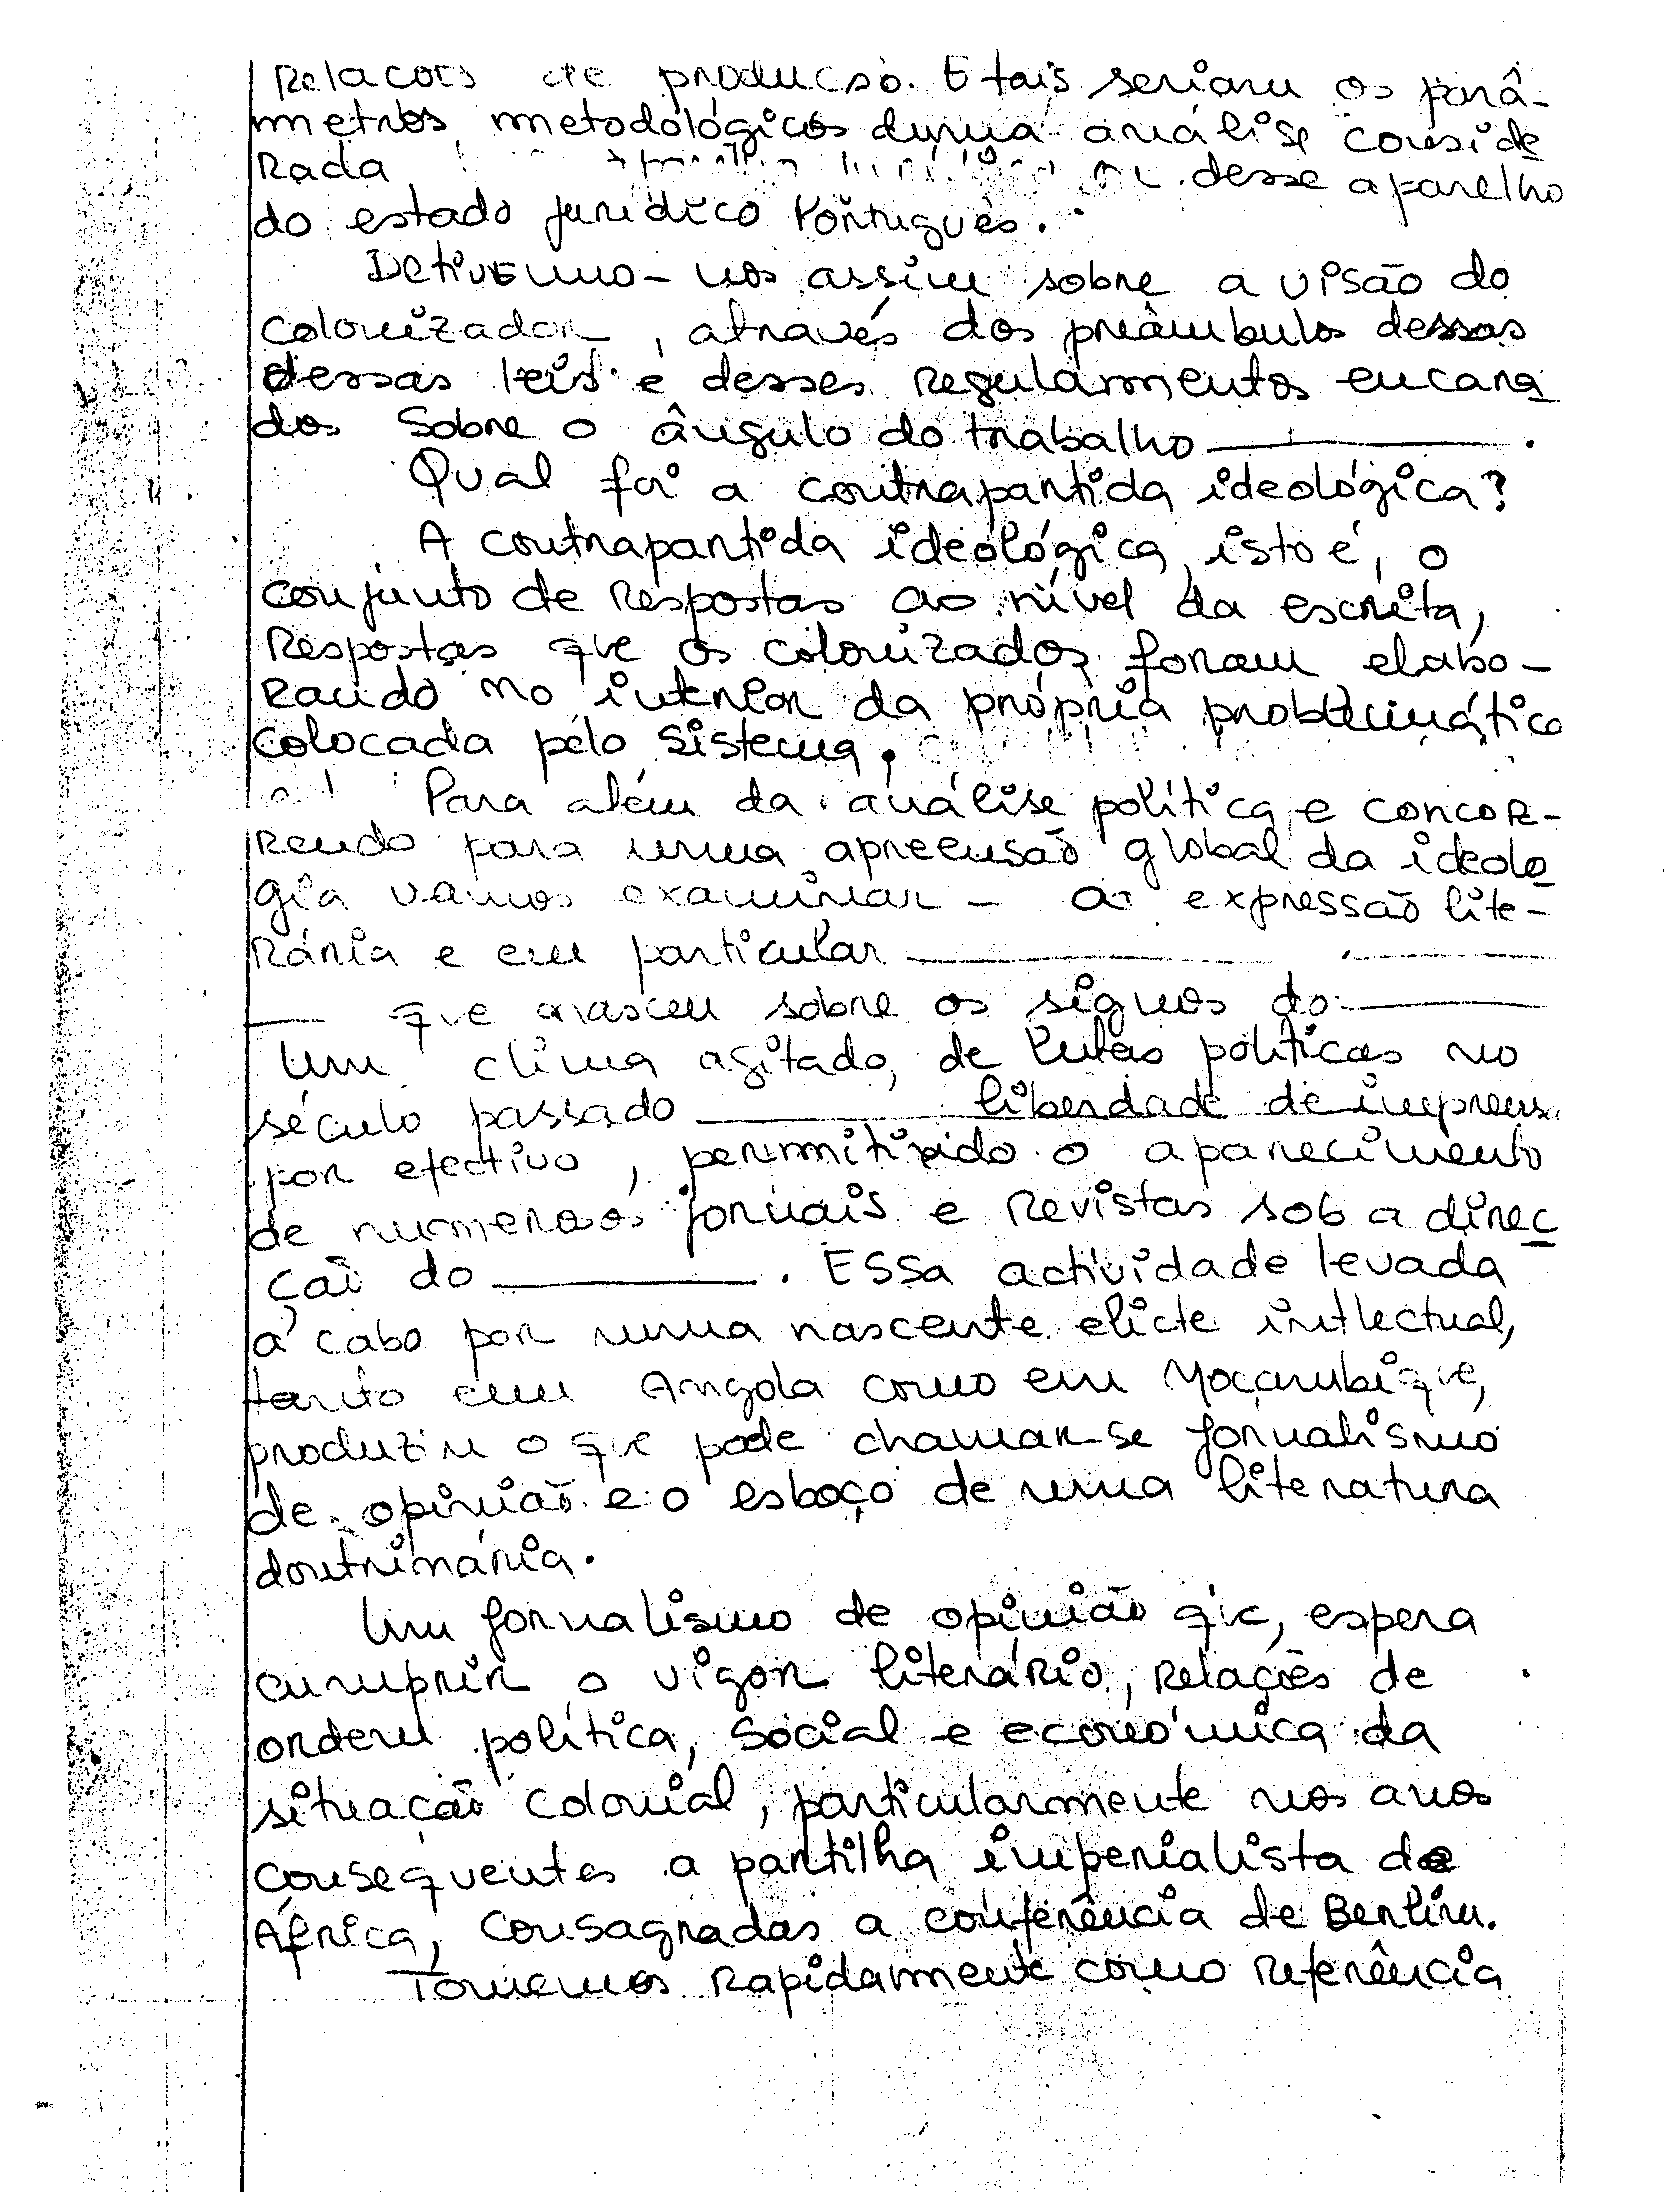 Relacoes de producso. E tais seriam os parâ-
metros metodológicos duma análise conside
Rada desse aparelho
do estado jurídico Português.
Detivemo-nos assim sobre a visão do
colonizador, através dos preâmbulos dessas
dessas leis e desses regulamentos encara
dos sobre o ângulo do trabalho ———.
Qual foi a contrapartida ideológica?
A contrapartida ideológica, isto é, o
conjunto de respostas ao nível da escrita,
Respostas que os colonizados foram elabo-
rando no interior da própria problemático
colocada pelo sistema.
Para além da análise política e concor-
rendo para uma apreensão global da ideolo
gia vamos examinar - a expressão lite-
rária e em particular ———
— que nasceu sobre os signos do ———
Um clima agitado, de lutas políticas no
século passado ——— liberdade de imprens
por efectivo, permitindo o aparecimento
de numerosos jornais e revistas sob a direc
çaõ do ———. Essa actividade levada
a' cabo por uma nascente elicte intlectual,
tanto em Angola como em Moçambique,
produziu o que pode chamar-se jornalismo
de opiniaõ e o esboço de uma literatura
doutrinária.
Um jornalismo de opinião que, espera
cumprir o vigor literário, relações de
ordem política, social e económica da
situaçaõ colonial, particularmente nos anos
consequentes a partilha imperialista de
África, consagradas a conferência de Berlim.
Tomemos rapidamente como referência